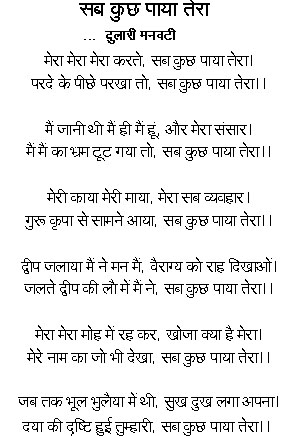 सब कुछ पाया तेरा
... दुलारी मनवटी
मेरा मेरा मेरा करते, सब कुछ पाया तेरा।
परदे के पीछे परखा तो, सब कुछ पाया तेरा।।
मैं जानी थी मैं ही मैं हूं, और मेरा संसार।
मैं मैं का भ्रम टूट गया तो, सब कुछ पाया तेरा।।
मेरी काया मेरी माया, मेरा सब व्यवहार।
गुरू कृपा से सामने आया, सब कुछ पाया तेरा।।
द्वीप जलाया मैं ने मन मैं, वैराग्य को राह दिखाओं।
जलते द्वीप की लौ में मैं ने, सब कुछ पाया तेरा।।
मेरा मेरा मोह में रह कर, खोजा क्या है मेरा।
मेरे नाम का जो भी देखा, सब कुछ पाया तेरा।।
जब तक भूल भुलैया में थी, सुख दुख लगा अपना।
दया की दृष्टि हुई तुम्हारी, सब कुछ पाया तेरा।।